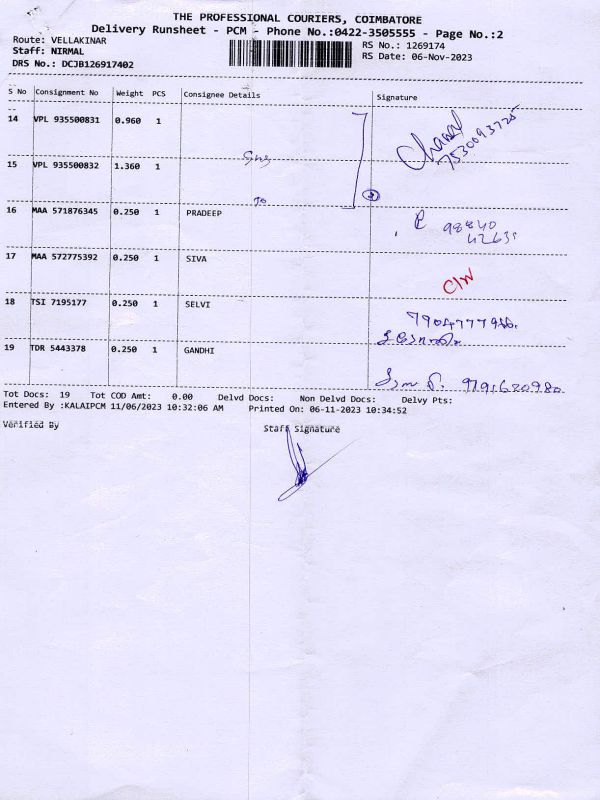 THE PROFESSIONAL COURIERS, COIMBATORE
Delivery Runsheet - PCM - Phone No.:0422-3505555 - Page No.:2
Route: VELLAKINAR
RS No.: 1269174
Staff: NIRMAL
RS Date: 06-Nov-2023
DRS No.: DCJB126917402
S No Consignment No Weight PCS Consignee Details Signature
14 VPL 935500831 0.960 1
7530093725
15 VPL 935500832 1.360 1
16 MAA 571876345 0.250 1 PRADEEP
98840
17 MAA 572775392 0.250 1 SIVA
C/W
18 TSI 7195177 0.250 1 SELVI
19 TDR 5443378 0.250 1 GANDHI
9791620980
Tot Docs: 19 Tot COD Amt: 0.00 Delvd Docs: Non Delvd Docs: Delvy Pts:
Entered By :KALAIPCM 11/06/2023 10:32:06 AM Printed On: 06-11-2023 10:34:52
Verified By Staff Signature